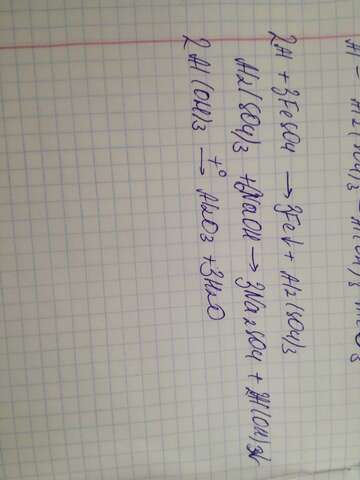 Al – Al2(SO4)3 – Al(OH)3 – Al2O3
2Al + 3FeSO4 → 3Fe↓ + Al2(SO4)3
Al2(SO4)3 + 6NaOH → 3Na2SO4 + 2Al(OH)3↓
2Al(OH)3 t° → Al2O3 + 3H2O